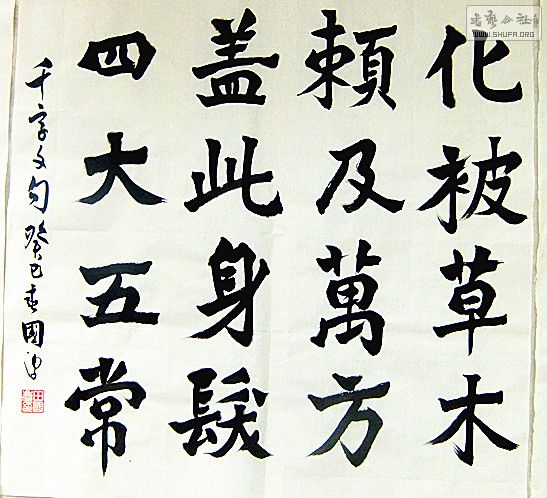 化被草木
賴及萬方
盖此身髮
四大五常
千字文句 癸巳春國
WWW.SHUFA.ORG